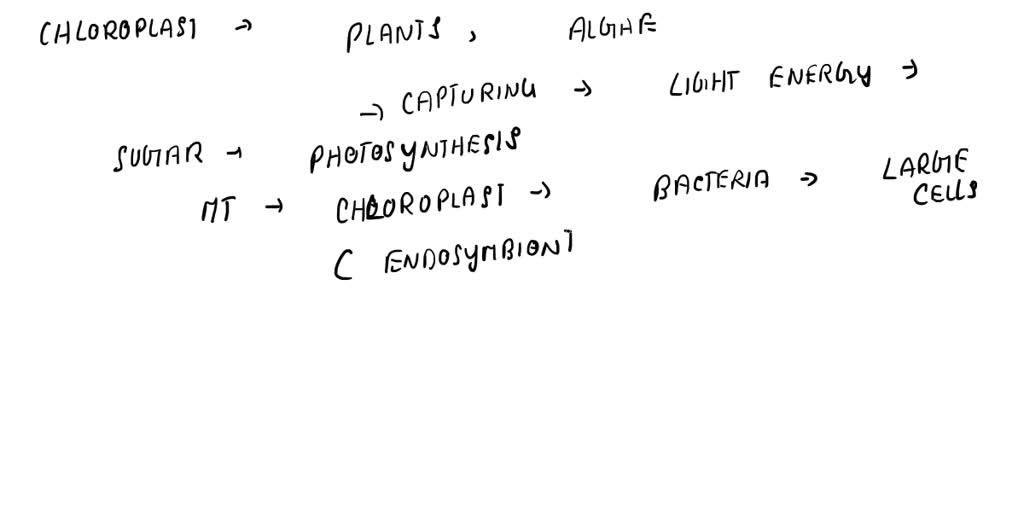 CHLOROPLAST → PLANTS, ALGAE
→ CAPTURING → LIGHT ENERGY →
SUGAR → PHOTOSYNTHESIS
MT → CHLOROPLAST → BACTERIA → LARGE CELLS
( ENDOSYMBIONT